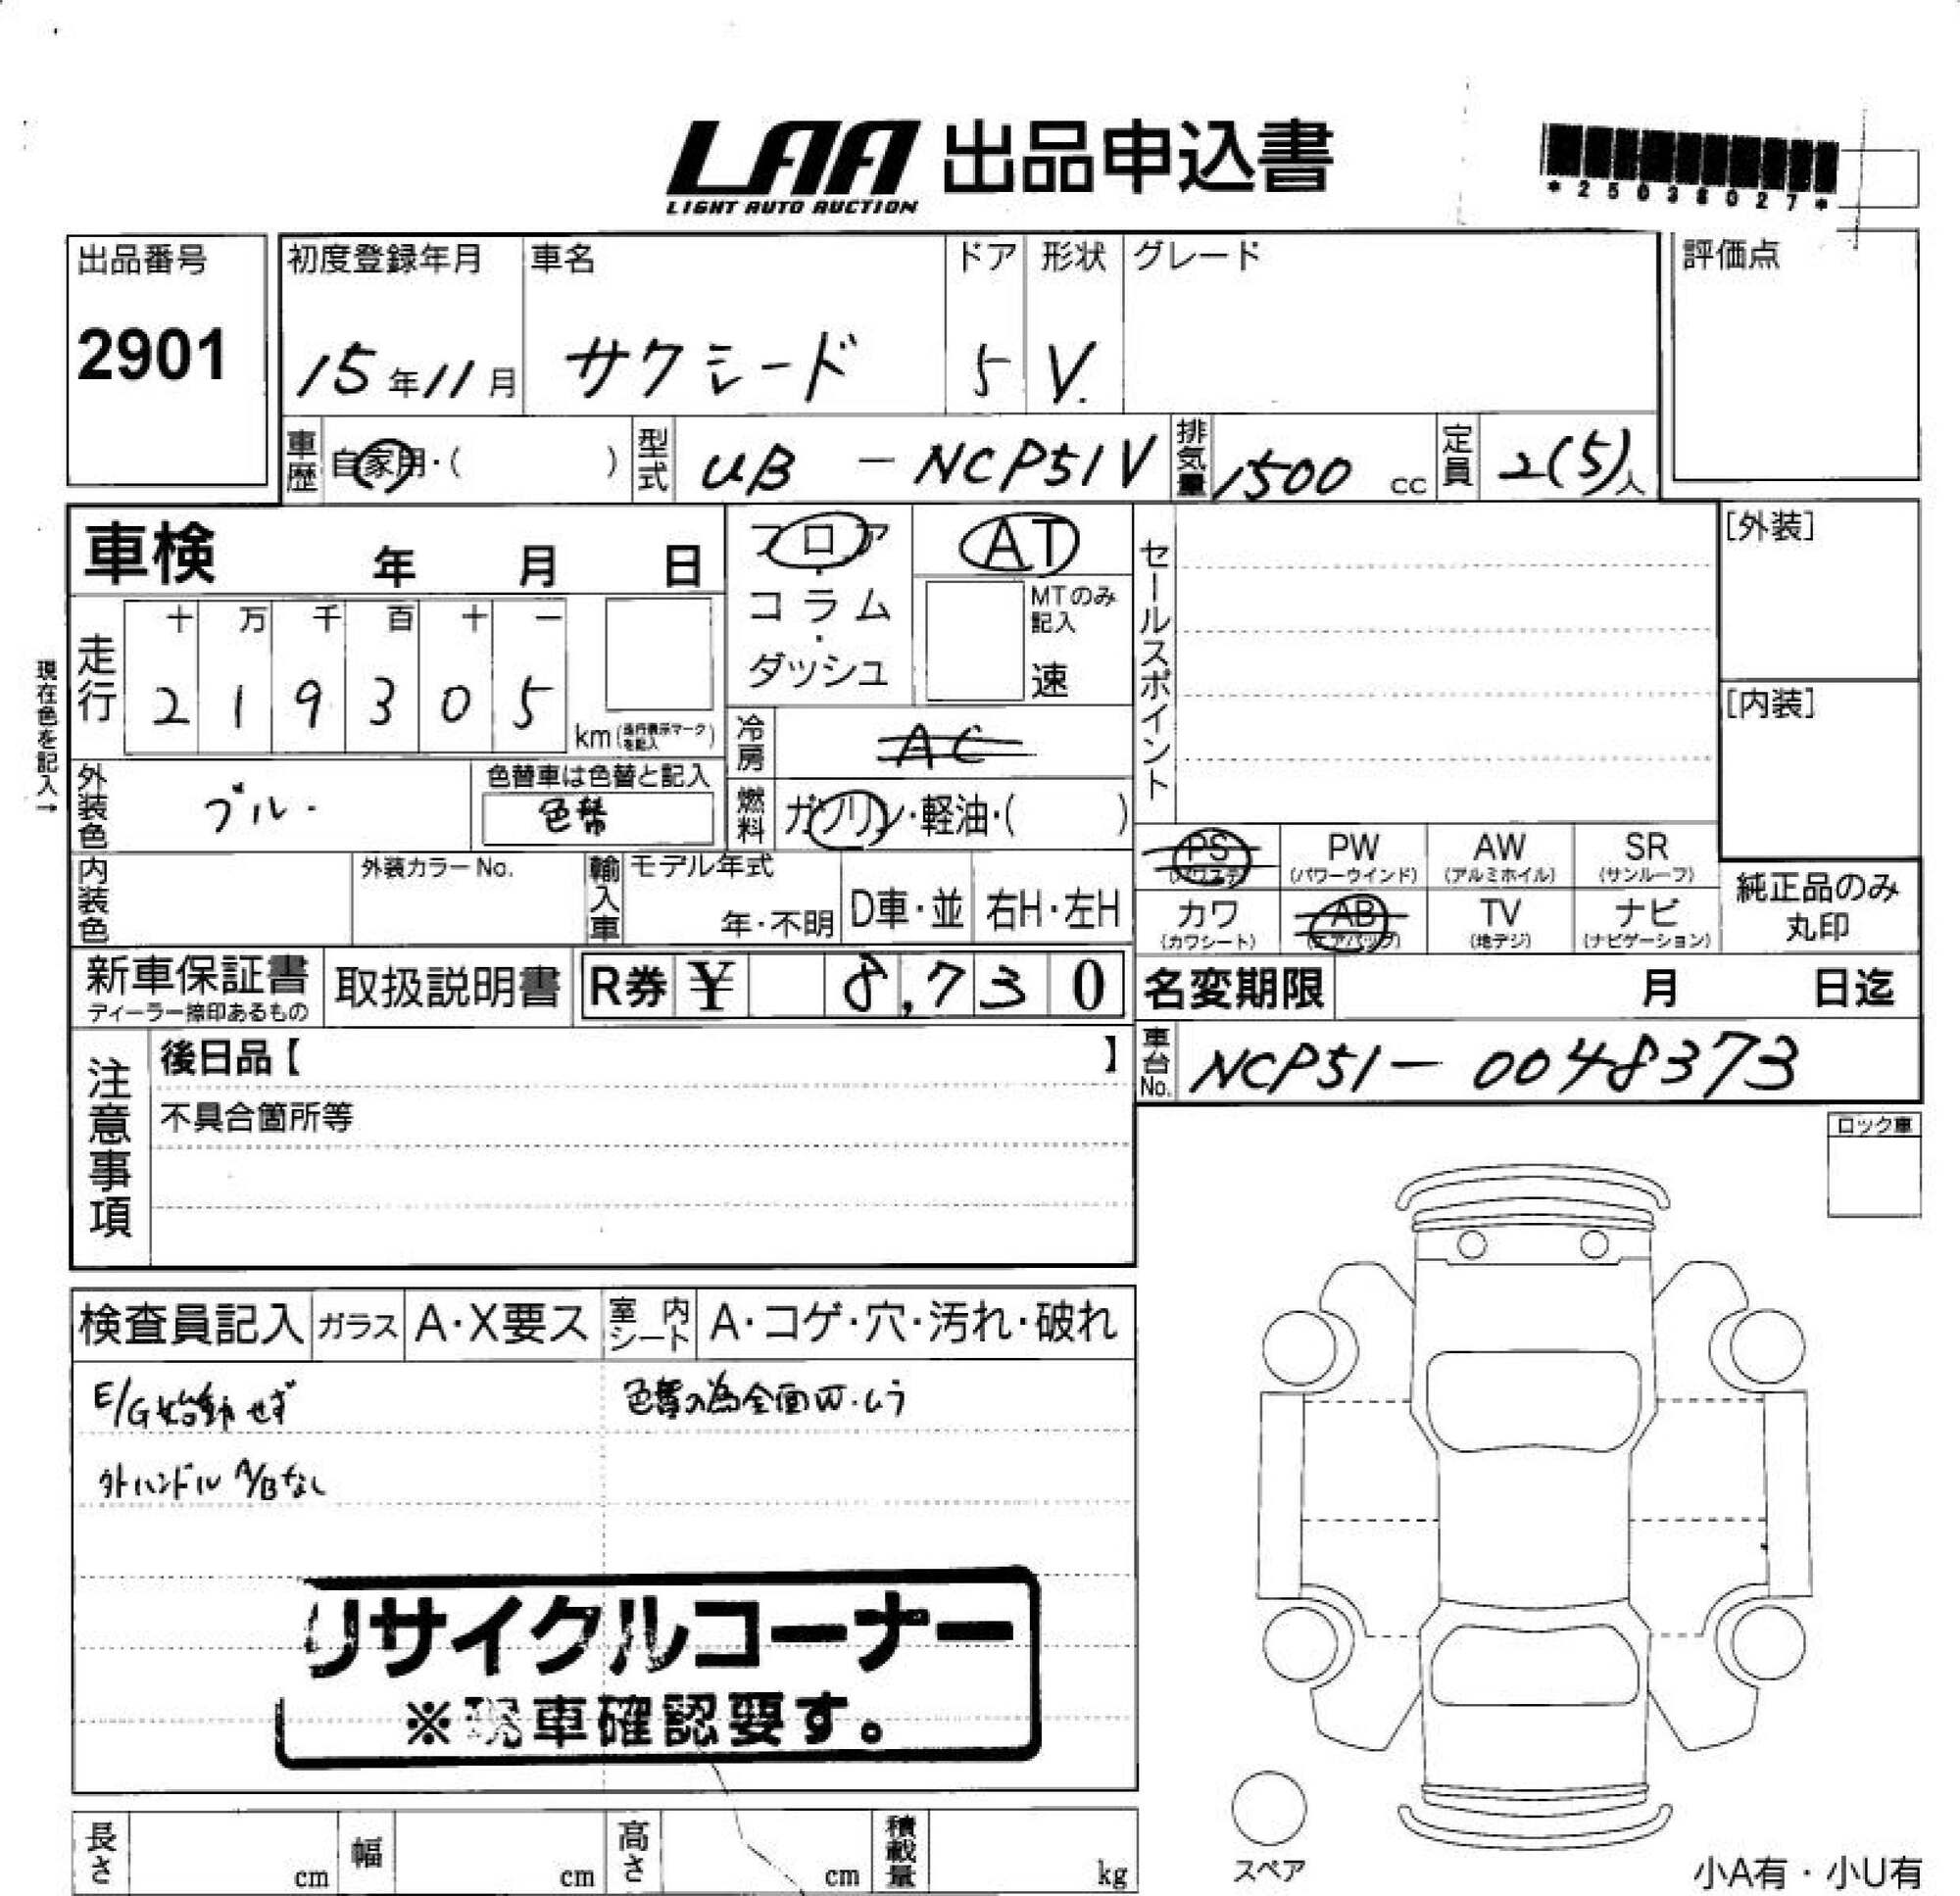 LAA 出品申込書
LIGHT AUTO AUCTION
*25038027*
出品番号
2901
初度登録年月
15年11月
車名
サクシード
ドア
5
形状
V.
グレード
評価点
車歴 自家用・( )
型式 UB - NCP51V
排気量 1500 cc
定員 2(5)人
車検 年 月 日
フロア・コラム・ダッシュ
AT
MTのみ記入
速
セールスポイント
[外装]
[内装]
現在色を記入→
走行 十 万 千 百 十 一
2 1 9 3 0 5
km(走行表示マークを記入)
冷房 AC
外装色 ブルー
色替車は色替と記入
色替
燃料 ガソリン・軽油・( )
PS (パワステ)
PW (パワーウインド)
AW (アルミホイル)
SR (サンルーフ)
カワ (カワシート)
AB (エアバック)
TV (地デジ)
ナビ (ナビゲーション)
純正品のみ丸印
内装色
外装カラーNo.
輸入車
モデル年式
年・不明
D車・並
右H・左H
新車保証書
ディーラー捺印あるもの
取扱説明書
R券 ¥ 8,730
名変期限 月 日迄
車台No. NCP51-0048373
注意事項
後日品【 】
不具合箇所等
ロック車
検査員記入
ガラス A・X要ス
室内シート A・コゲ・穴・汚れ・破れ
E/G始動せず
色替の為全面W.ムラ
外ハンドル A/Bなし
リサイクルコーナー
※現車確認要す。
長さ cm
幅 cm
高さ cm
積載量 kg
スペア
小A有・小U有